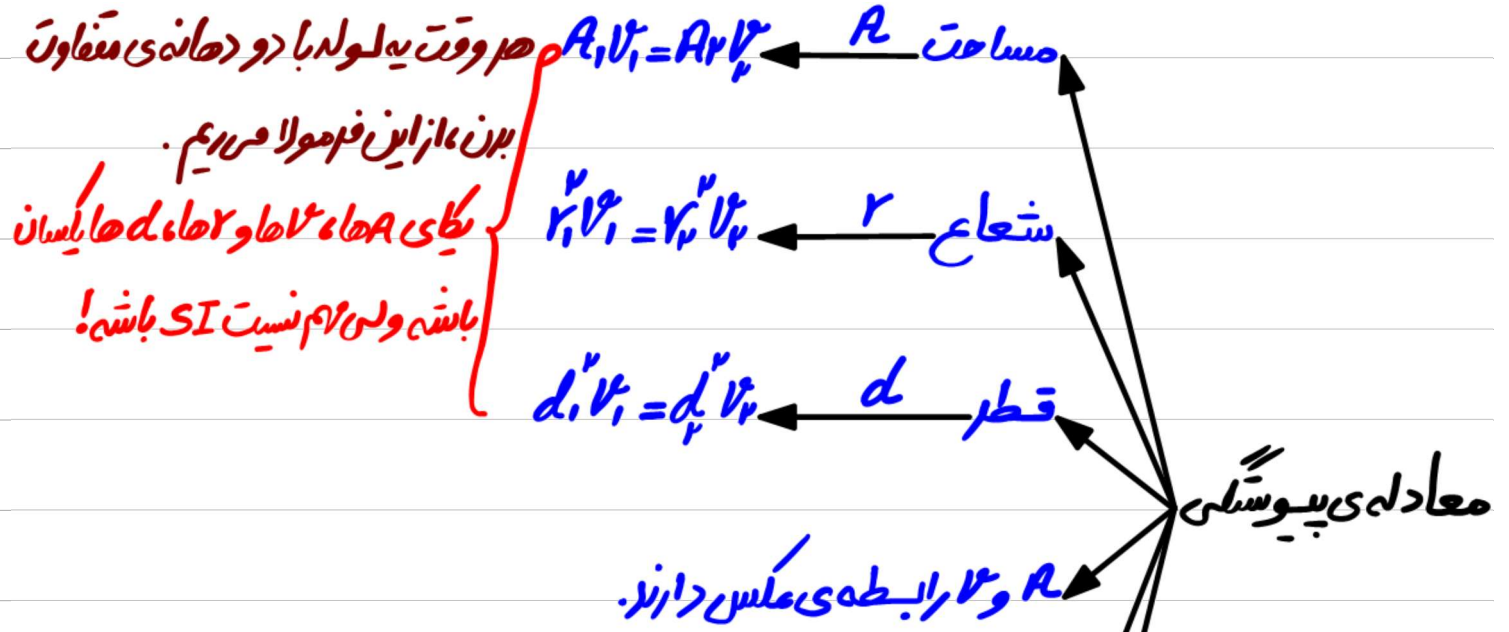 معادله‌ی پیوستگی
مساحت A A₁V₁=A₂V₂
شعاع r r₁²V₁=r₂²V₂
قطر d d₁²V₁=d₂²V₂
A و V رابطه‌ی عکس دارند.
هر وقت یه لوله با دو دهانه‌ی متفاوت
بدن، از این فرمولا میریم.
یکای Aها، Vها و rها، dها یکسان
باشه ولی مهم نسیت SI باشه!